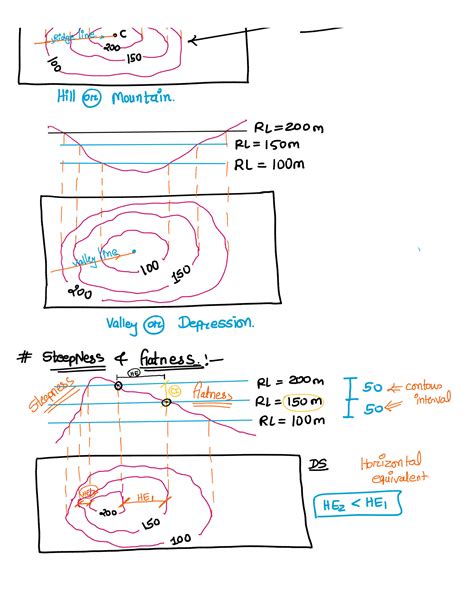 Ridge line C
200
150
100
Hill or Mountain.
RL = 200m
RL = 150m
RL = 100m
Valley line
100
150
200
Valley or Depression.
# Steepness & flatness :-
HE
Steepness
flatness
RL = 200m
RL = 150m
RL = 100m
50 ← contour interval
50
DS
Horizontal
equivalent
HE2 HE1
200
150
100
HE2 < HE1